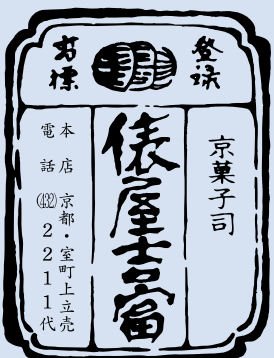 登録
商標
京菓子司
俵屋吉富
本店 京都・室町上立売
電話(432)2211代